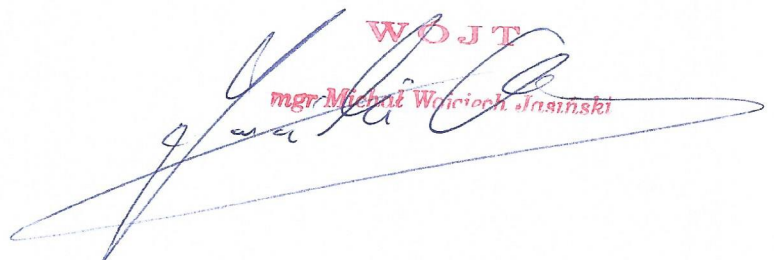 WÓJT
mgr Michał Wojciech Jasiński